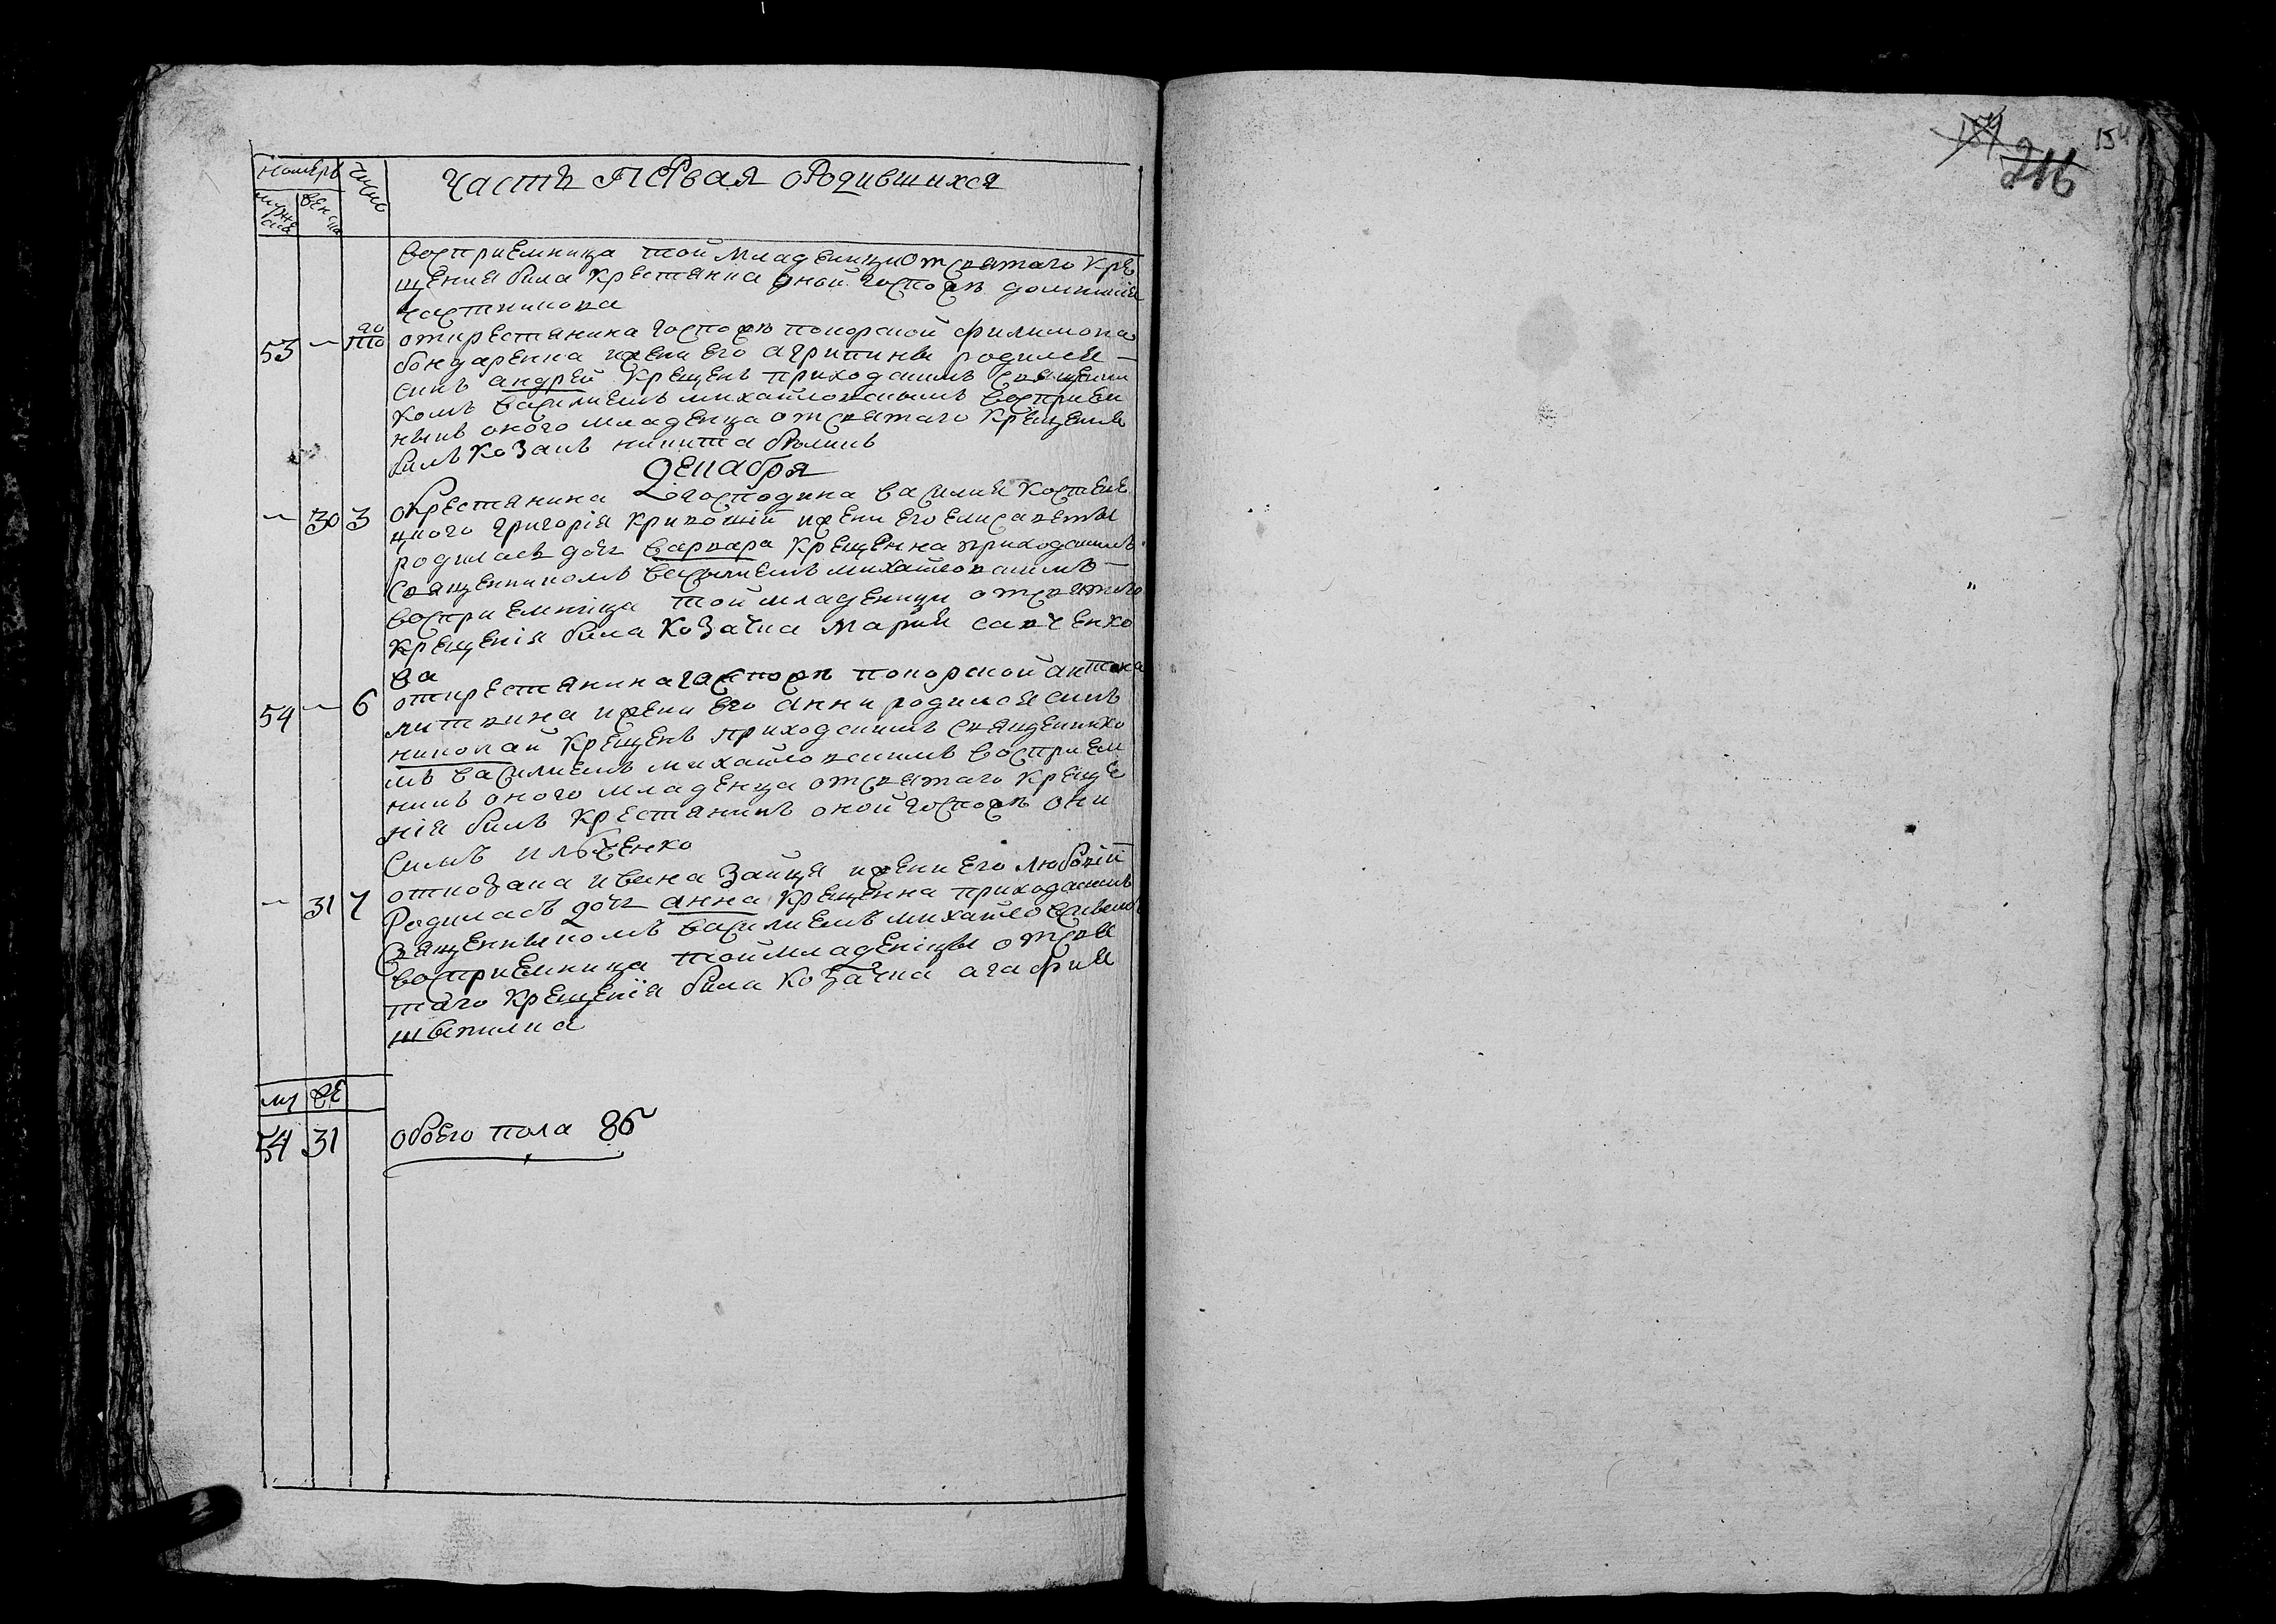 номеръ число Часть Первая о Родившихся
мужеска женска
восприемница той младеници отсвятаго кре
щения била крестянка оной госпожѣ
53 ~ отъкрестянина госпожѣ покорской филимона
бондаренка ижени его агрипины родился
синъ андрей крещенъ приходскимъ священни
комъ василиемъ михайловскимъ восприем
никъ оного младенца отсвятаго крещения
билъ козакъ никита
Декабря
~ 30 3 господина василия
григория ижени его елисаветы
родилась дочь варвара крещенна приходскимъ
священникомъ василиемъ михайловскимъ
восприемница той младеници отсвятаго
крещения била козачка мария савченко
ва
54 ~ 6 открестянина госпожѣ покорской антона
литвина ижени его анни родился синъ
николай крещенъ приходскимъ священико
мъ василиемъ михайловскимъ восприем
никъ оного младенца отсвятаго креще
нія билъ крестянинъ оной госпожѣ они
симъ ильченко
~ 31 7 откозака ивана зайця ижени его любовій
Родилась дочь анна крещенна приходскимъ
священникомъ василиемъ михайловскимъ
восприемница той младеницы отсвя
таго крещенія била козачка агафия
му же
54 31 обоего пола 85
154
216
154